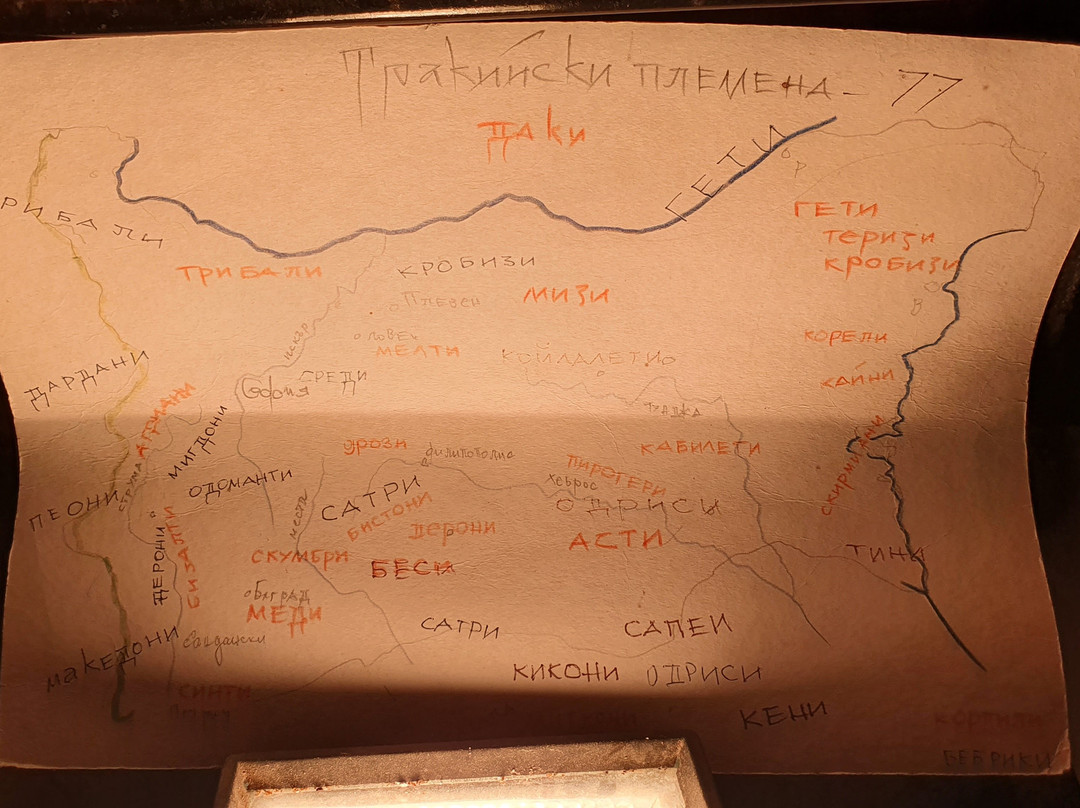 Тракийски племена - 77
ДАКИ
ГЕТИ
РИБАЛИ
ГЕТИ
Теризи
КРОБИЗИ
ТРИБАЛИ
КРОБИЗИ
Плевен
МИЗИ
искър
Ловеч
МЕЛТИ
КОЙЛАЛЕТИ
КОРЕЛИ
ДАРДАНИ
София
СРЕДИ
КАЙНИ
АГРИАНИ
МИГДОНИ
ЯРОЗИ
филипополис
КАБИЛЕТИ
ПИРОГЕРИ
Хеброс
ОДРИСЫ
СТРУМА
ОДОМАНТИ
САТРИ
БИСТОНИ
ДЕРОНИ
АСТИ
ПЕОНИ
места
ДЕРОНИ
БИЗАЛТИ
СКУМБРИ
БЕСИ
ТИНИ
Благ
МЕДИ
МАКЕДОНИ
Сандански
САТРИ
САПЕИ
КИКОНИ
ОДРИСИ
СИНТИ
КЕНИ
КОРПИЛИ
БЕБРИКИ